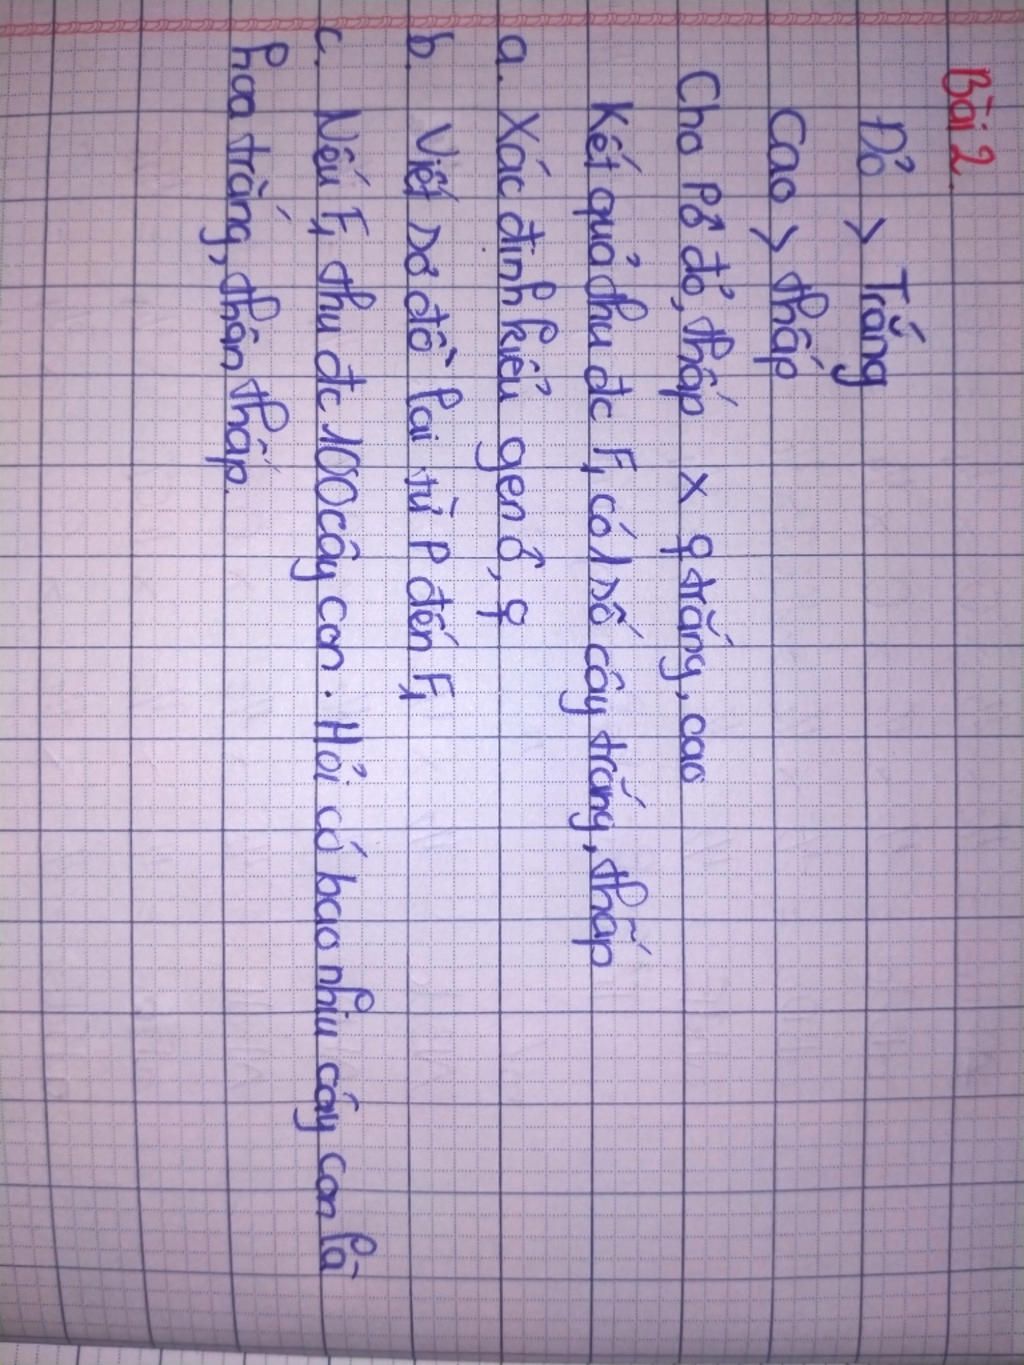 Bài 2.
Đỏ > Trắng
Cao > thấp
Cho P ♂ đỏ, thấp x ♀ trắng, cao
Kết quả thu đc F₁ có 1 số cây trắng, thấp
a. Xác định kiểu gen ♂, ♀
b. Viết sơ đồ lai từ P đến F₁
c. Nếu F₁ thu đc 100 cây con. Hỏi có bao nhiu cây con là
hoa trắng, thân thấp.